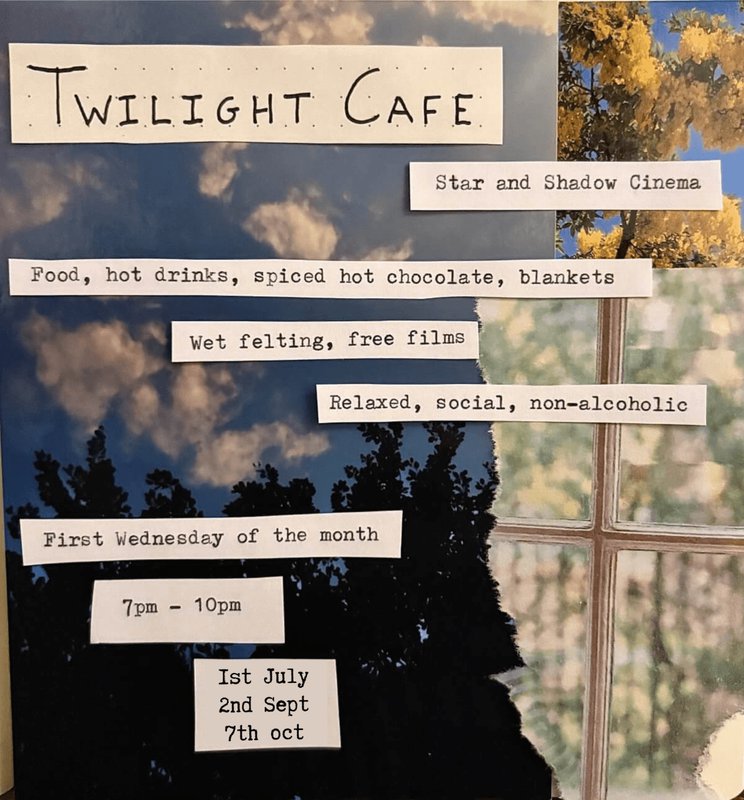 TWILIGHT CAFE
Star and Shadow Cinema
Food, hot drinks, spiced hot chocolate, blankets
Wet felting, free films
Relaxed, social, non-alcoholic
First Wednesday of the month
7pm - 10pm
Ist July
2nd Sept
7th oct